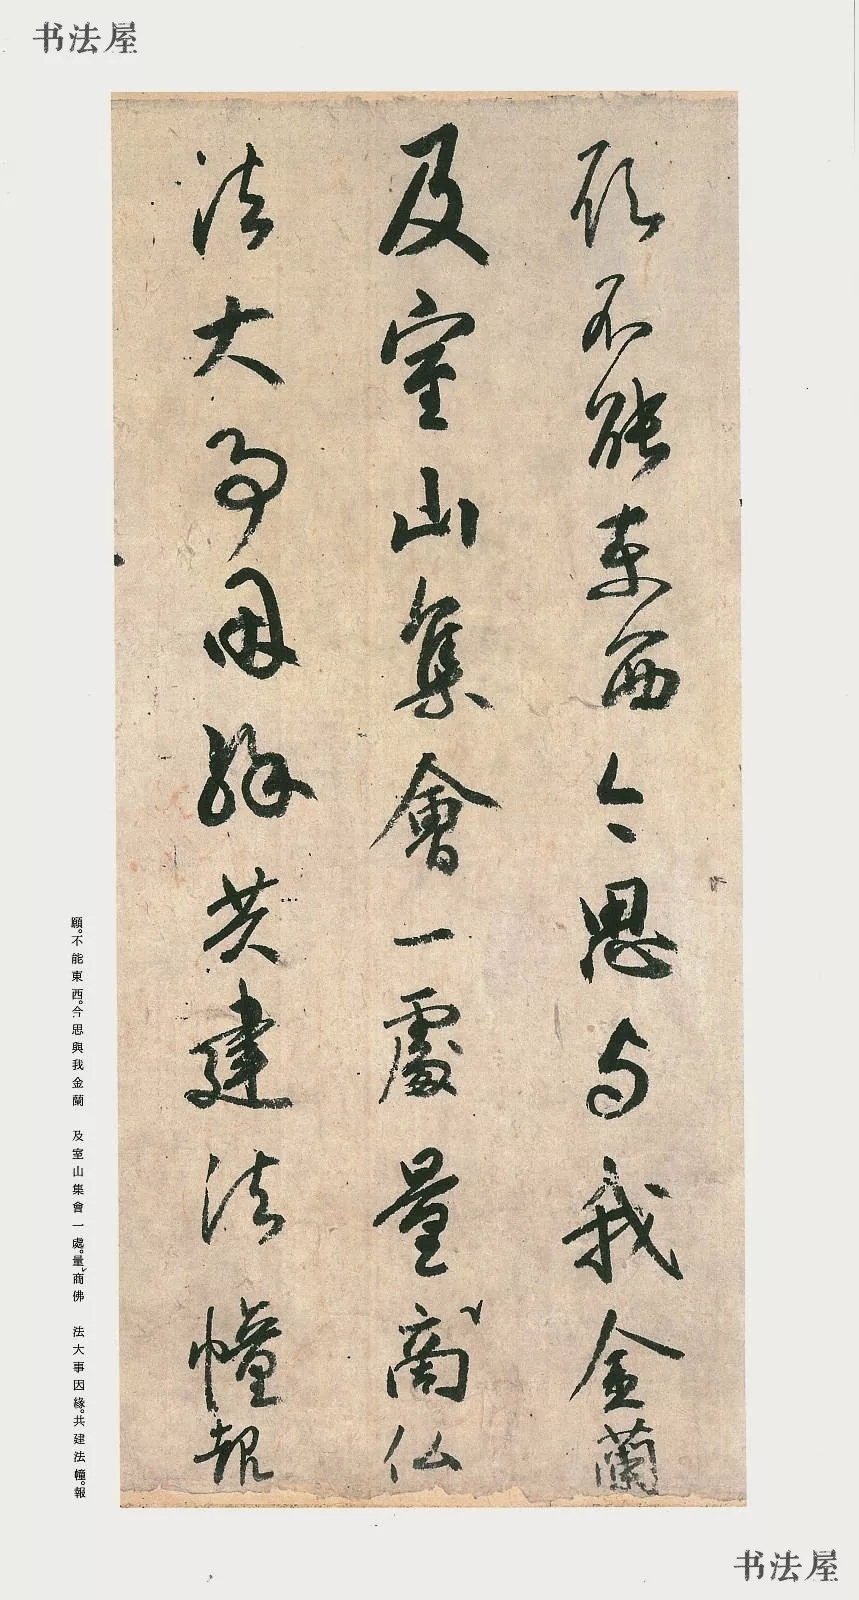 书法屋
願不能東西今思与我金蘭
及室山集會一處量商仏
法大事因緣共建法幢報
願。不能東西。今思與我金蘭　及室山集會一處。量商佛　法大事因緣。共建法幢。報
书法屋